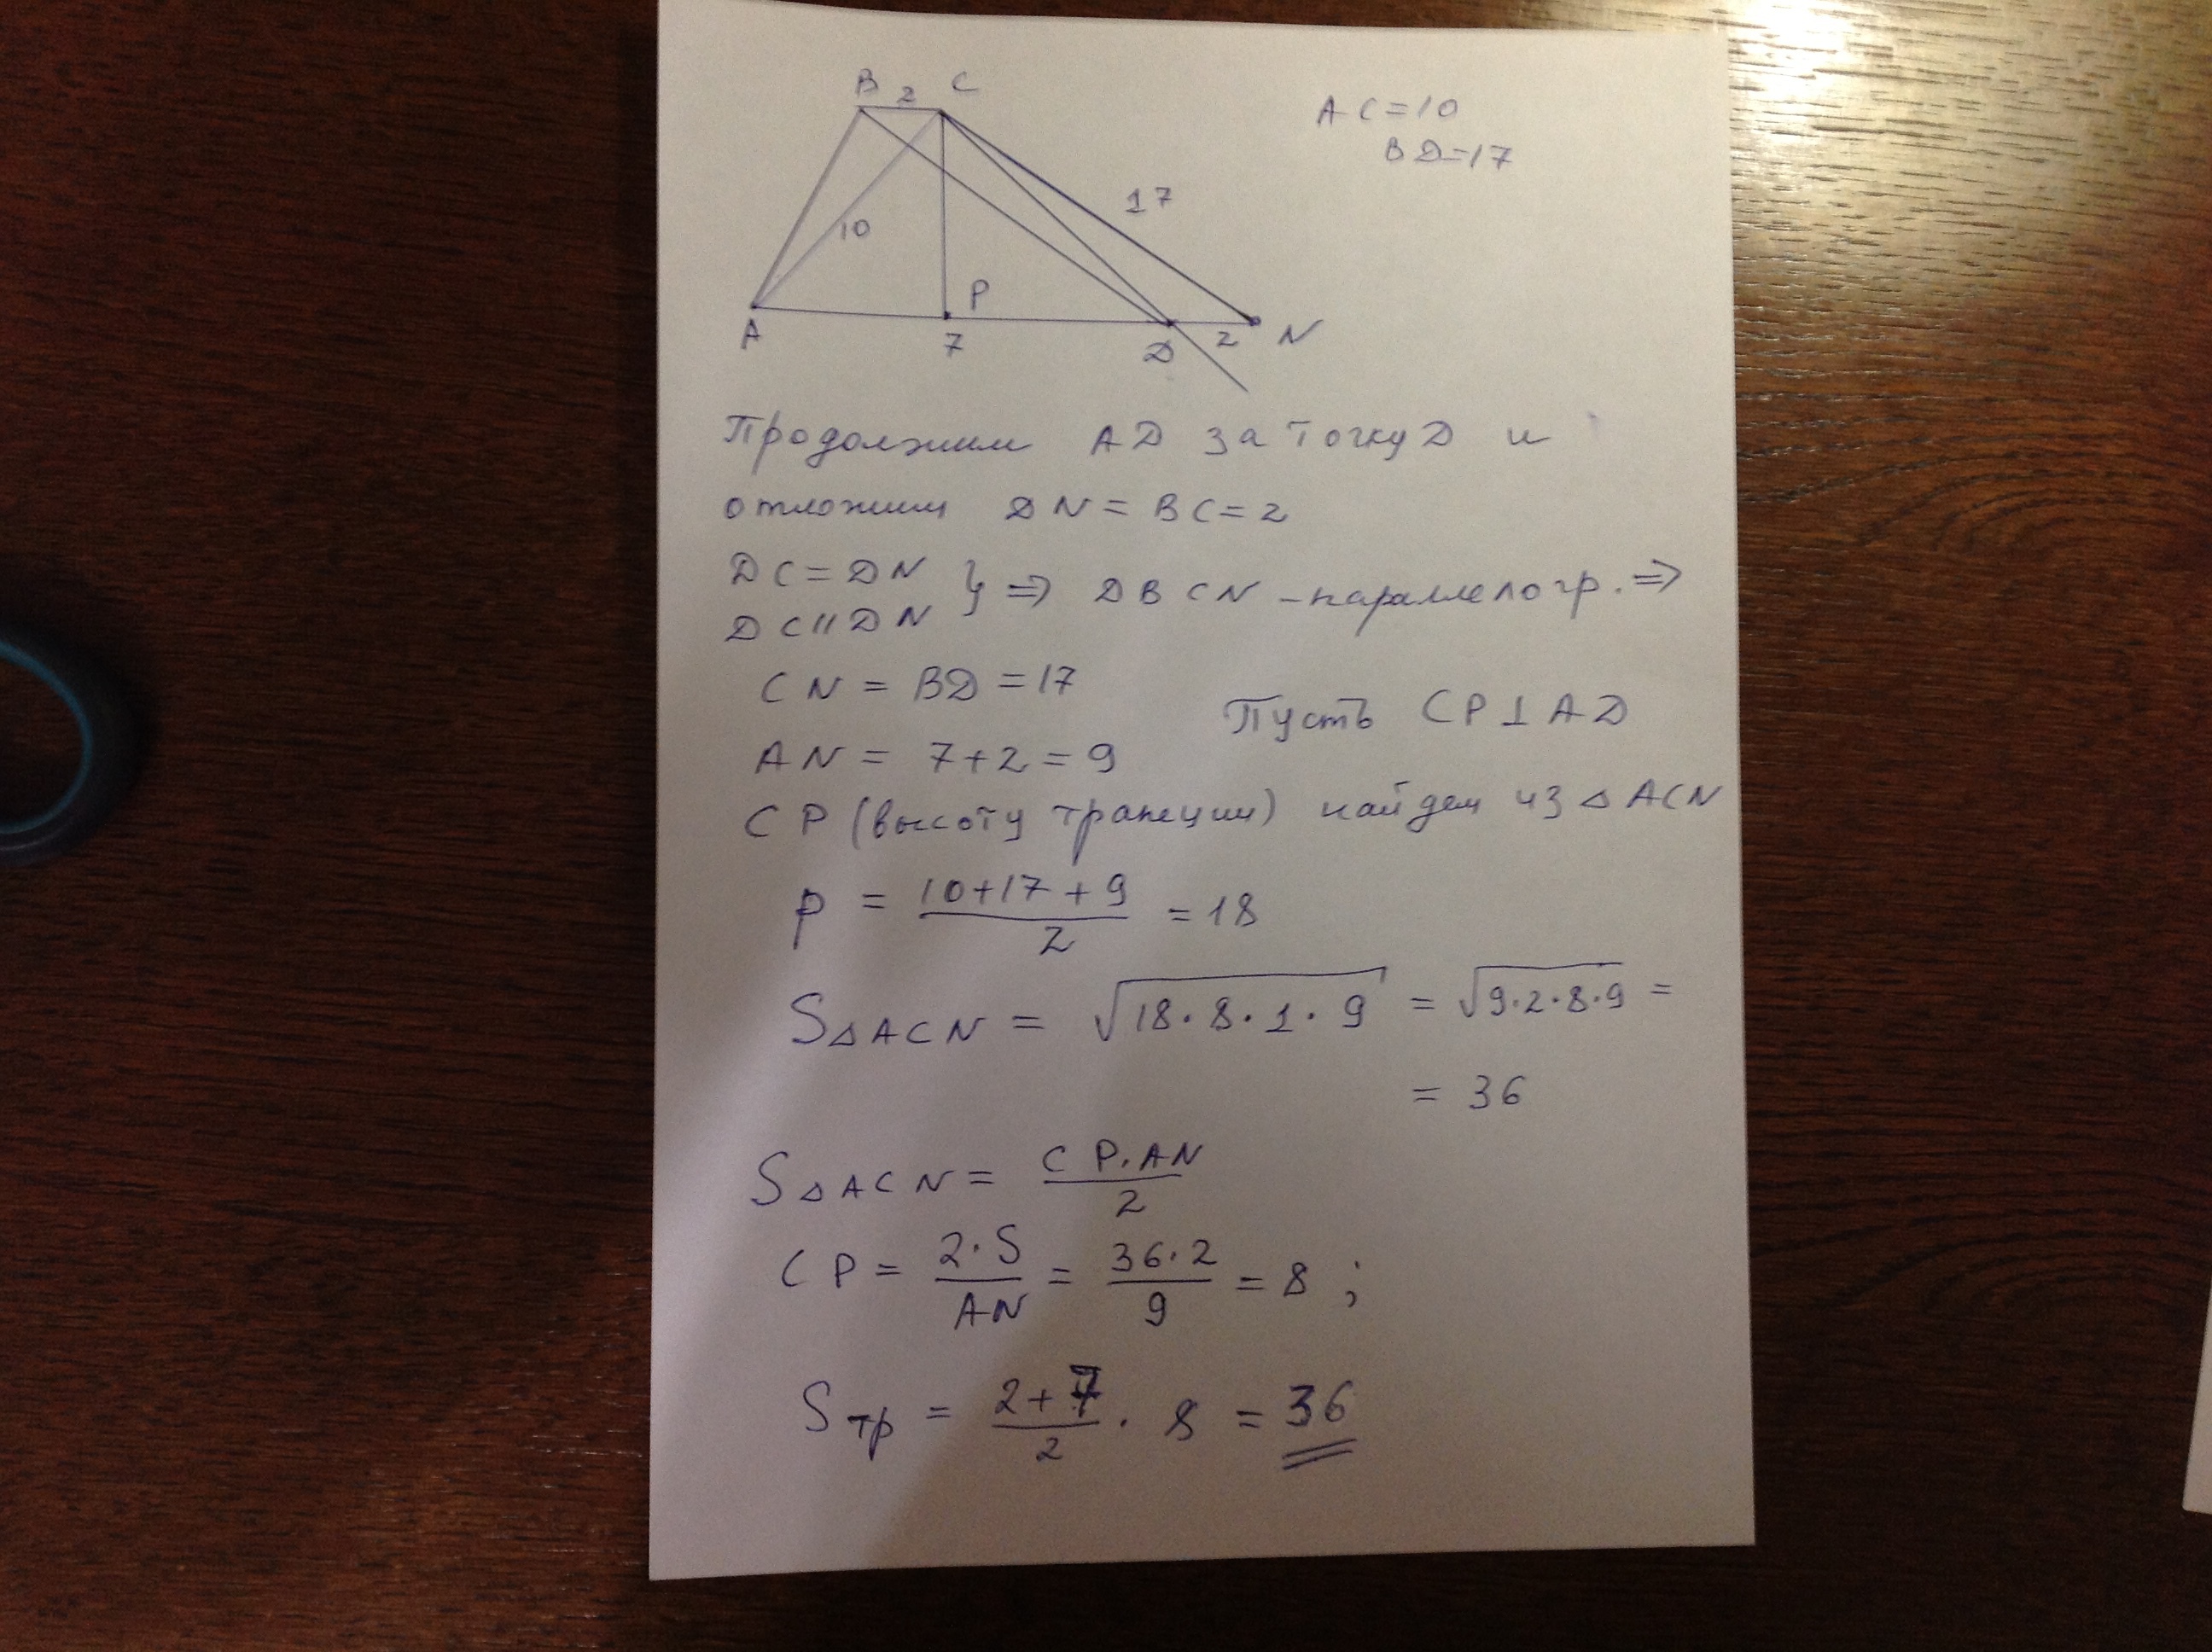 B 2 C
AC=10
BD=17
17
10
P
A 7 D 2 N
Продолжим AD за точку D и
отложим DN = BC = 2
DC = DN
DC || DN } ⇒ DBCN – параллелогр. ⇒
CN = BD = 17
Пусть CP ⊥ AD
AN = 7+2 = 9
CP (высоту трапеции) найдем из △ ACN
p = (10+17+9)/2 = 18
S△ACN = √(18·8·1·9) = √(9·2·8·9) =
= 36
S△ACN = (CP·AN)/2
CP = (2·S)/AN = (36·2)/9 = 8 ;
Sтр = (2+7)/2 · 8 = 36